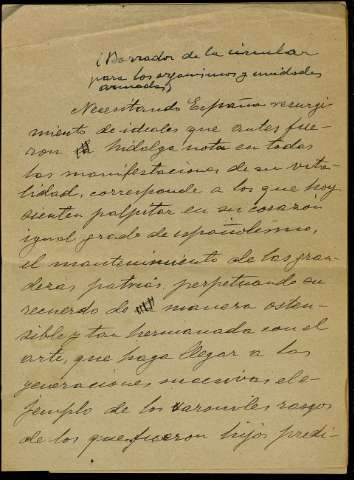 (Borrador de la circular
para los organismos y unidades
armadas)
Necesitando España resurgi-
miento de ideales que antes fue-
ron hidalga nota en todas
las manifestaciones de su vita-
lidad, corresponde a los que hoy
sienten palpitar en su corazón
igual grado de españolismo,
el mantenimiento de las gran-
dezas patrias, perpetuando su
recuerdo de manera osten-
sible y tan hermanada con el
arte, que haga llegar a las
generaciones sucesivas el e-
jemplo de los varoniles rasgos
de los que fueron hijos predi-